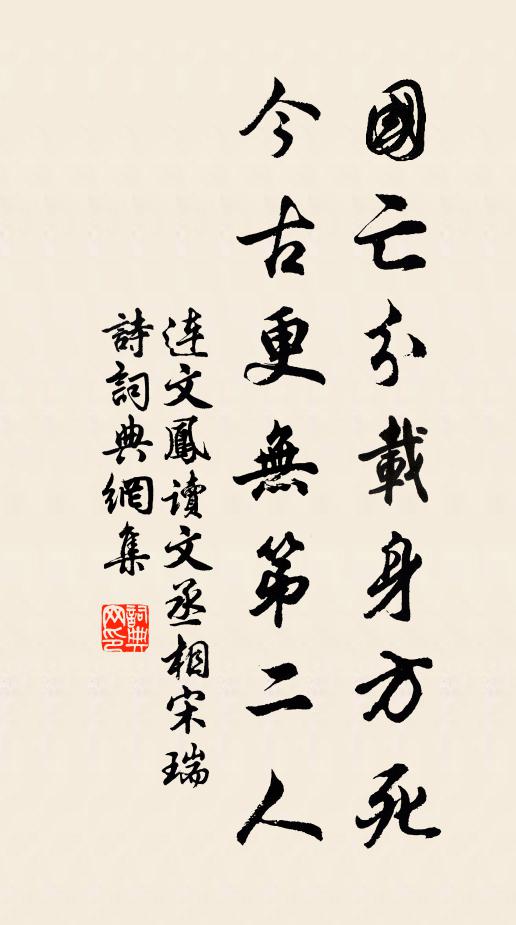 國亡分載身方死
今古更無第二人
连文鳳讀文丞相宋瑞
詩詞典網集
詞典网印